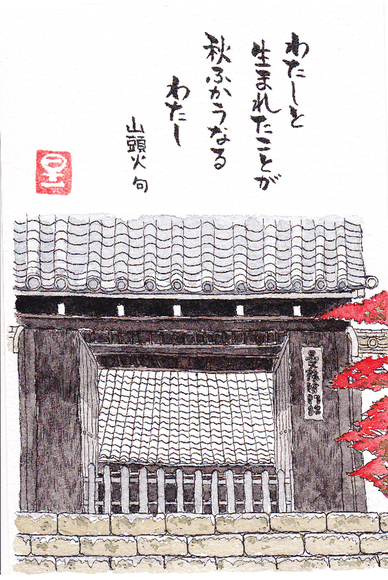 わたしと
生まれたことが
秋ふかうなる
わたし
山頭火 句